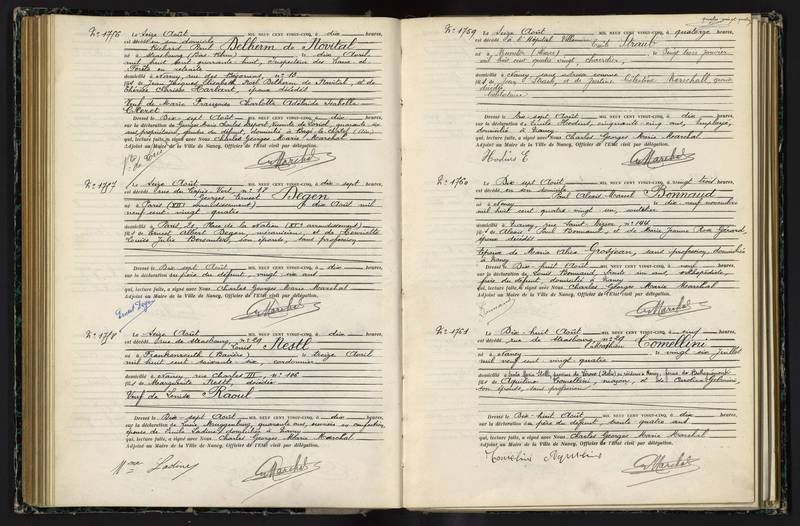 N° 1756 Le Seize Août MIL NEUF CENT VINGT-CINQ, à dix heures,
est décédé en son domicile
Richard Paul Delherm de Novital
né à Strasbourg (Bas-Rhin) le dix Avril
mil huit cent quarante huit, Inspecteur des Eaux et
Forêts en retraite
domicilié à Nancy, rue des Bégonias n° 13
fils de Jean Jacques Elisabeth Delherm de Novital, et de
Thérèse Clarisse Harlaut, époux décédés
Veuf de Marie Françoise Charlotte Adélaïde Isabelle
Cleret
Dressé le Dix-sept Août MIL NEUF CENT VINGT-CINQ, à dix heures,
sur la déclaration de Georges Marie Charles Dupont, Vicomte de Loriol, quarante six
ans, propriétaire, gendre du défunt, domicilié à
qui, lecture faite, a signé avec Nous Charles Georges Marie Marchal
Adjoint au Maire de la Ville de Nancy, Officier de l'Etat civil par délégation.
Marchal
N° 1757 Le Seize Août MIL NEUF CENT VINGT-CINQ, à dix sept heures,
est décédé rue des Tapis Vert, n° 12
Georges Ernest Bégen
né à Paris (XII arrondissement) le dix Août mil
neuf cent vingt quatre
domicilié à Paris, Place de la Nation (XI° arrondissement)
fils de Ernest Albert Bégen, mécanicien, et de Henriette
Louise Julie, son épouse, sans profession
Dressé le Dix sept Août MIL NEUF CENT VINGT-CINQ, à dix heures,
sur la déclaration du père du défunt, vingt six ans
qui, lecture faite, a signé avec Nous Charles Georges Marie Marchal
Adjoint au Maire de la Ville de Nancy, Officier de l'Etat civil par délégation.
Marchal
N° 1758 Le Seize Août MIL NEUF CENT VINGT-CINQ, à dix heures,
est décédé rue de Strasbourg, n° 29
Louis Nestl
né à Frankenreuth (Bavière) le treize Avril
mil huit cent soixante six, cordonnier
domicilié à Nancy, rue Charles III, n° 106
fils de Marguerite Nestl, décédée
Veuf de Louise Raoul
Dressé le Dix-sept Août MIL NEUF CENT VINGT-CINQ, à dix heures,
sur la déclaration de Lucie, quarante ans, ouvrière en confection,
épouse de Emile Ladine, domiciliée à Nancy
qui, lecture faite, a signé avec Nous Charles Georges Marie Marchal
Adjoint au Maire de la Ville de Nancy, Officier de l'Etat civil par délégation.
Mme Ladine Marchal
N° 1759 Le Seize Août MIL NEUF CENT VINGT-CINQ, à quatorze heures,
est décédé à l'hôpital Villemin
Emile Straub
né à Munster (Alsace) le Vingt trois janvier
mil huit cent quatre vingt
domicilié à Nancy sans adresse connue
fils de Jean Straub, et de Justine Célestine Kerchall, époux
décédés
Célibataire
Dressé le Dix-sept Août MIL NEUF CENT VINGT-CINQ, à dix heures,
sur la déclaration de Emile Hodius, cinquante cinq ans, employé,
domicilié à Nancy
qui, lecture faite, a signé avec Nous Charles Georges Marie Marchal
Adjoint au Maire de la Ville de Nancy, Officier de l'Etat civil par délégation.
Hodius E Marchal
N° 1760 Le Dix sept Août MIL NEUF CENT VINGT-CINQ, à vingt trois heures,
est décédé en son domicile
Paul Alexis Marcel Bonnaud
né à Nancy le dix-neuf novembre
mil huit cent quatre vingt un, sellier
domicilié à Nancy, rue Saint Nicolas n° 144
fils de Alexis Paul Bonnaud, et de Marie Jeanne Rosa Gérard,
époux décédés
Epoux de Marie Grosjean, sans profession, domiciliée
à Nancy
Dressé le Dix-huit Août MIL NEUF CENT VINGT-CINQ, à neuf heures,
sur la déclaration de Louis Bonnaud, trente un ans, orthopédiste,
frère du défunt, domicilié à Nancy
qui, lecture faite, a signé avec Nous Charles Georges Marie Marchal
Adjoint au Maire de la Ville de Nancy, Officier de l'Etat civil par délégation.
Bonnaud Marchal
N° 1761 Le Dix huit Août MIL NEUF CENT VINGT-CINQ, à cinq heures,
est décédé rue de Strasbourg, n° 29
Comellini
né à Nancy le vingt six juillet
mil neuf cent vingt quatre
fils de Aquilino Comellini, maçon, et de Caroline
son épouse, sans profession
Dressé le Dix-huit Août MIL NEUF CENT VINGT-CINQ, à heures,
sur la déclaration du père du défunt, trente quatre ans
qui, lecture faite, a signé avec Nous Charles Georges Marie Marchal
Adjoint au Maire de la Ville de Nancy, Officier de l'Etat civil par délégation.
Marchal